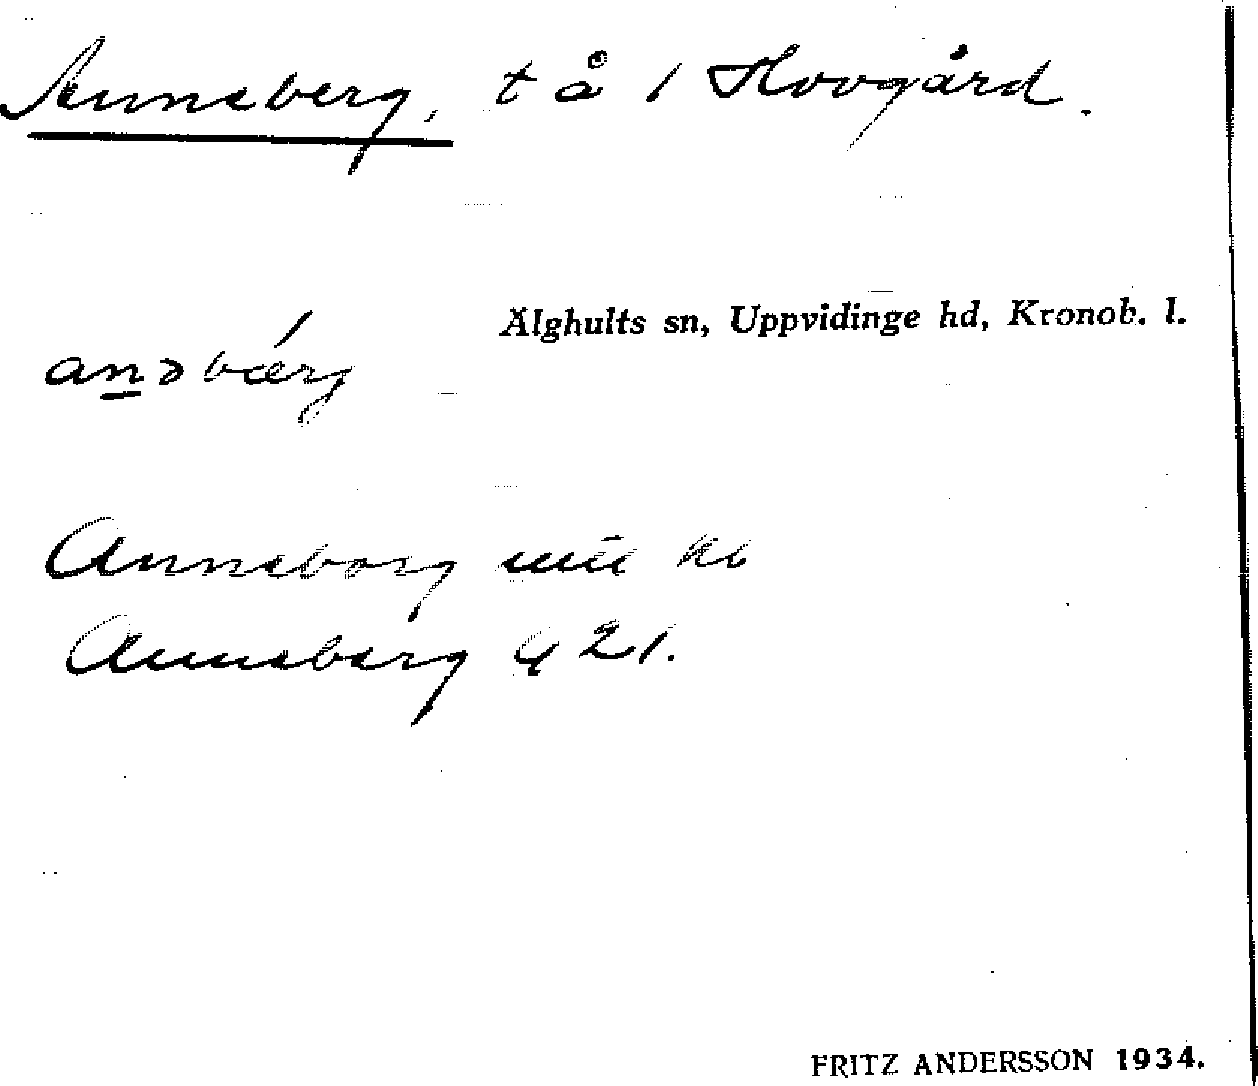 Anneberg, t å 1 Hovgård.
Älghults sn, Uppvidinge hd, Kronob. l.
anəbærg
Anneborg kb
Anneberg G 21.
FRITZ ANDERSSON 1934.